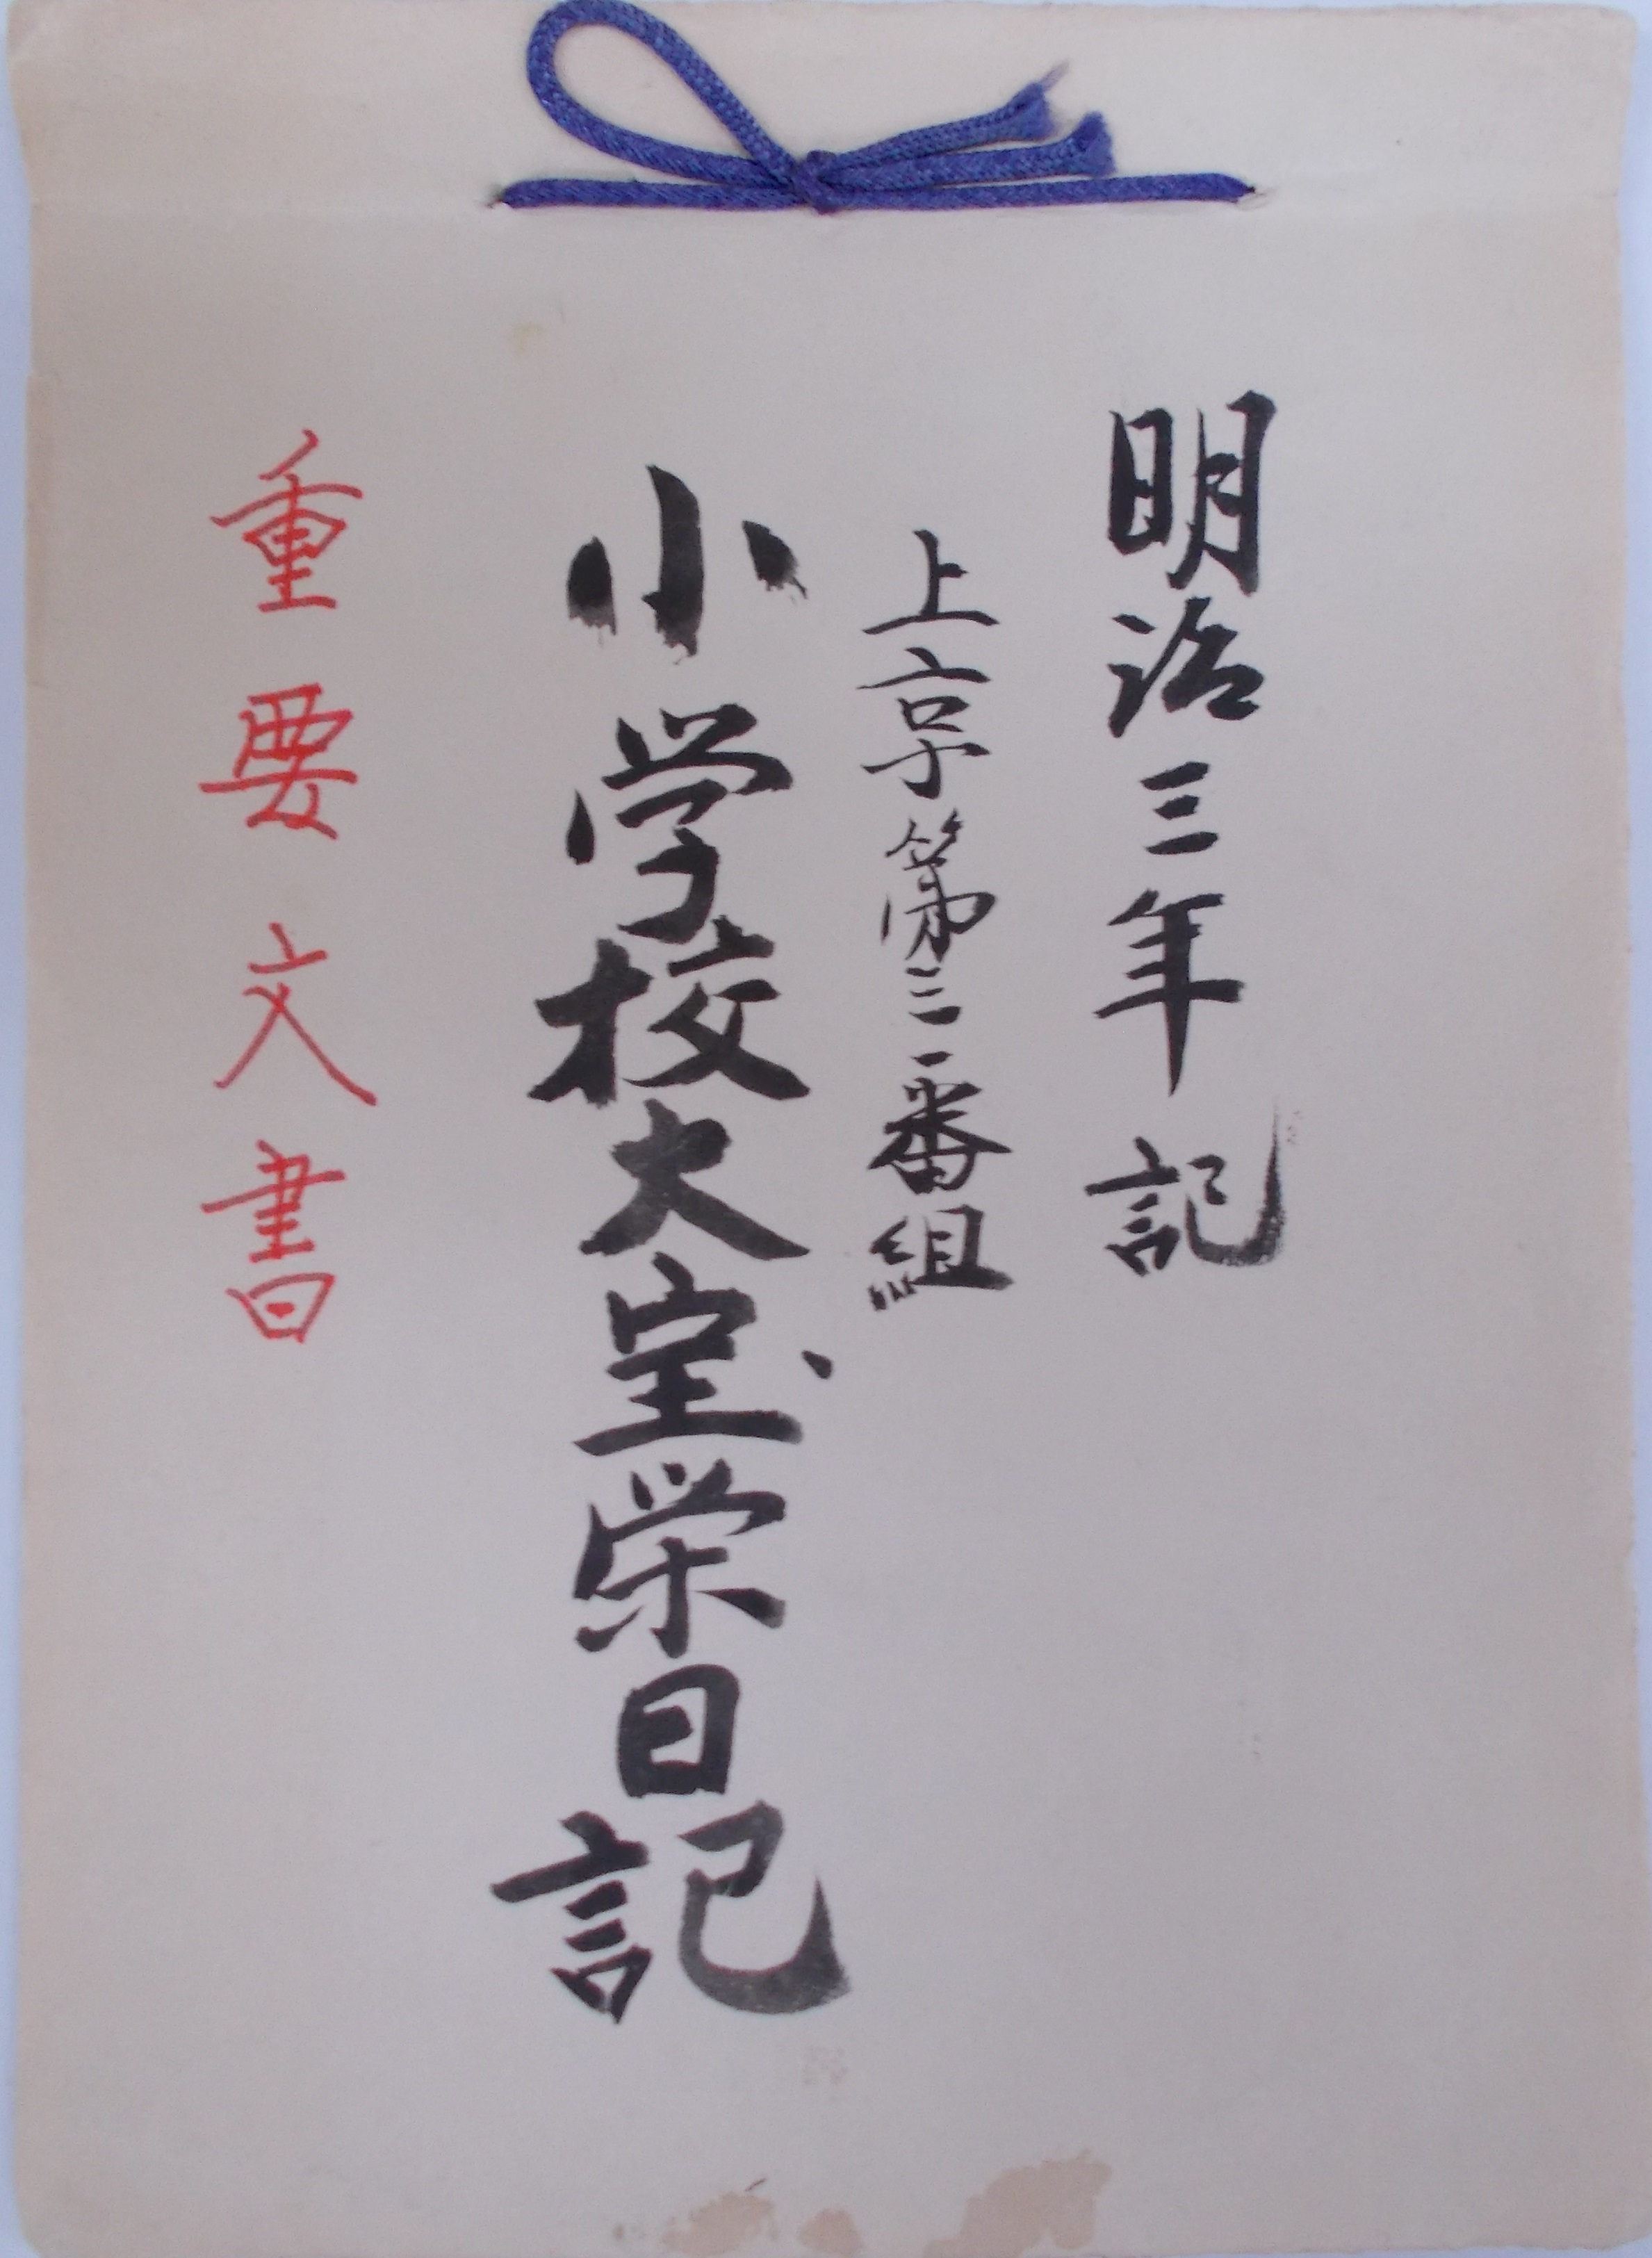 明治三年 記
上京第三一番組
小学校大宝栄日記
重要文書